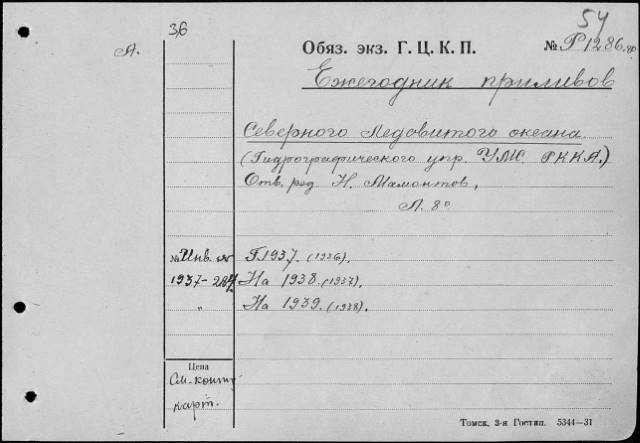 54
36
А.
Обяз. экз. Г. Ц. К. П. № Р1286.80
Ежегодник приливов
Северного Ледовитого океана.
(Гидрографического упр. УМС РККА.)
Отв. ред. Н. Мамонтов,
Л. 8°
№ Инв. Г. 1937. (1936).
1937- На 1938. (1937).
" На 1939. (1938).
Цена
См. конт.
карт.
Томск, 3-я Гостип. 5344—31